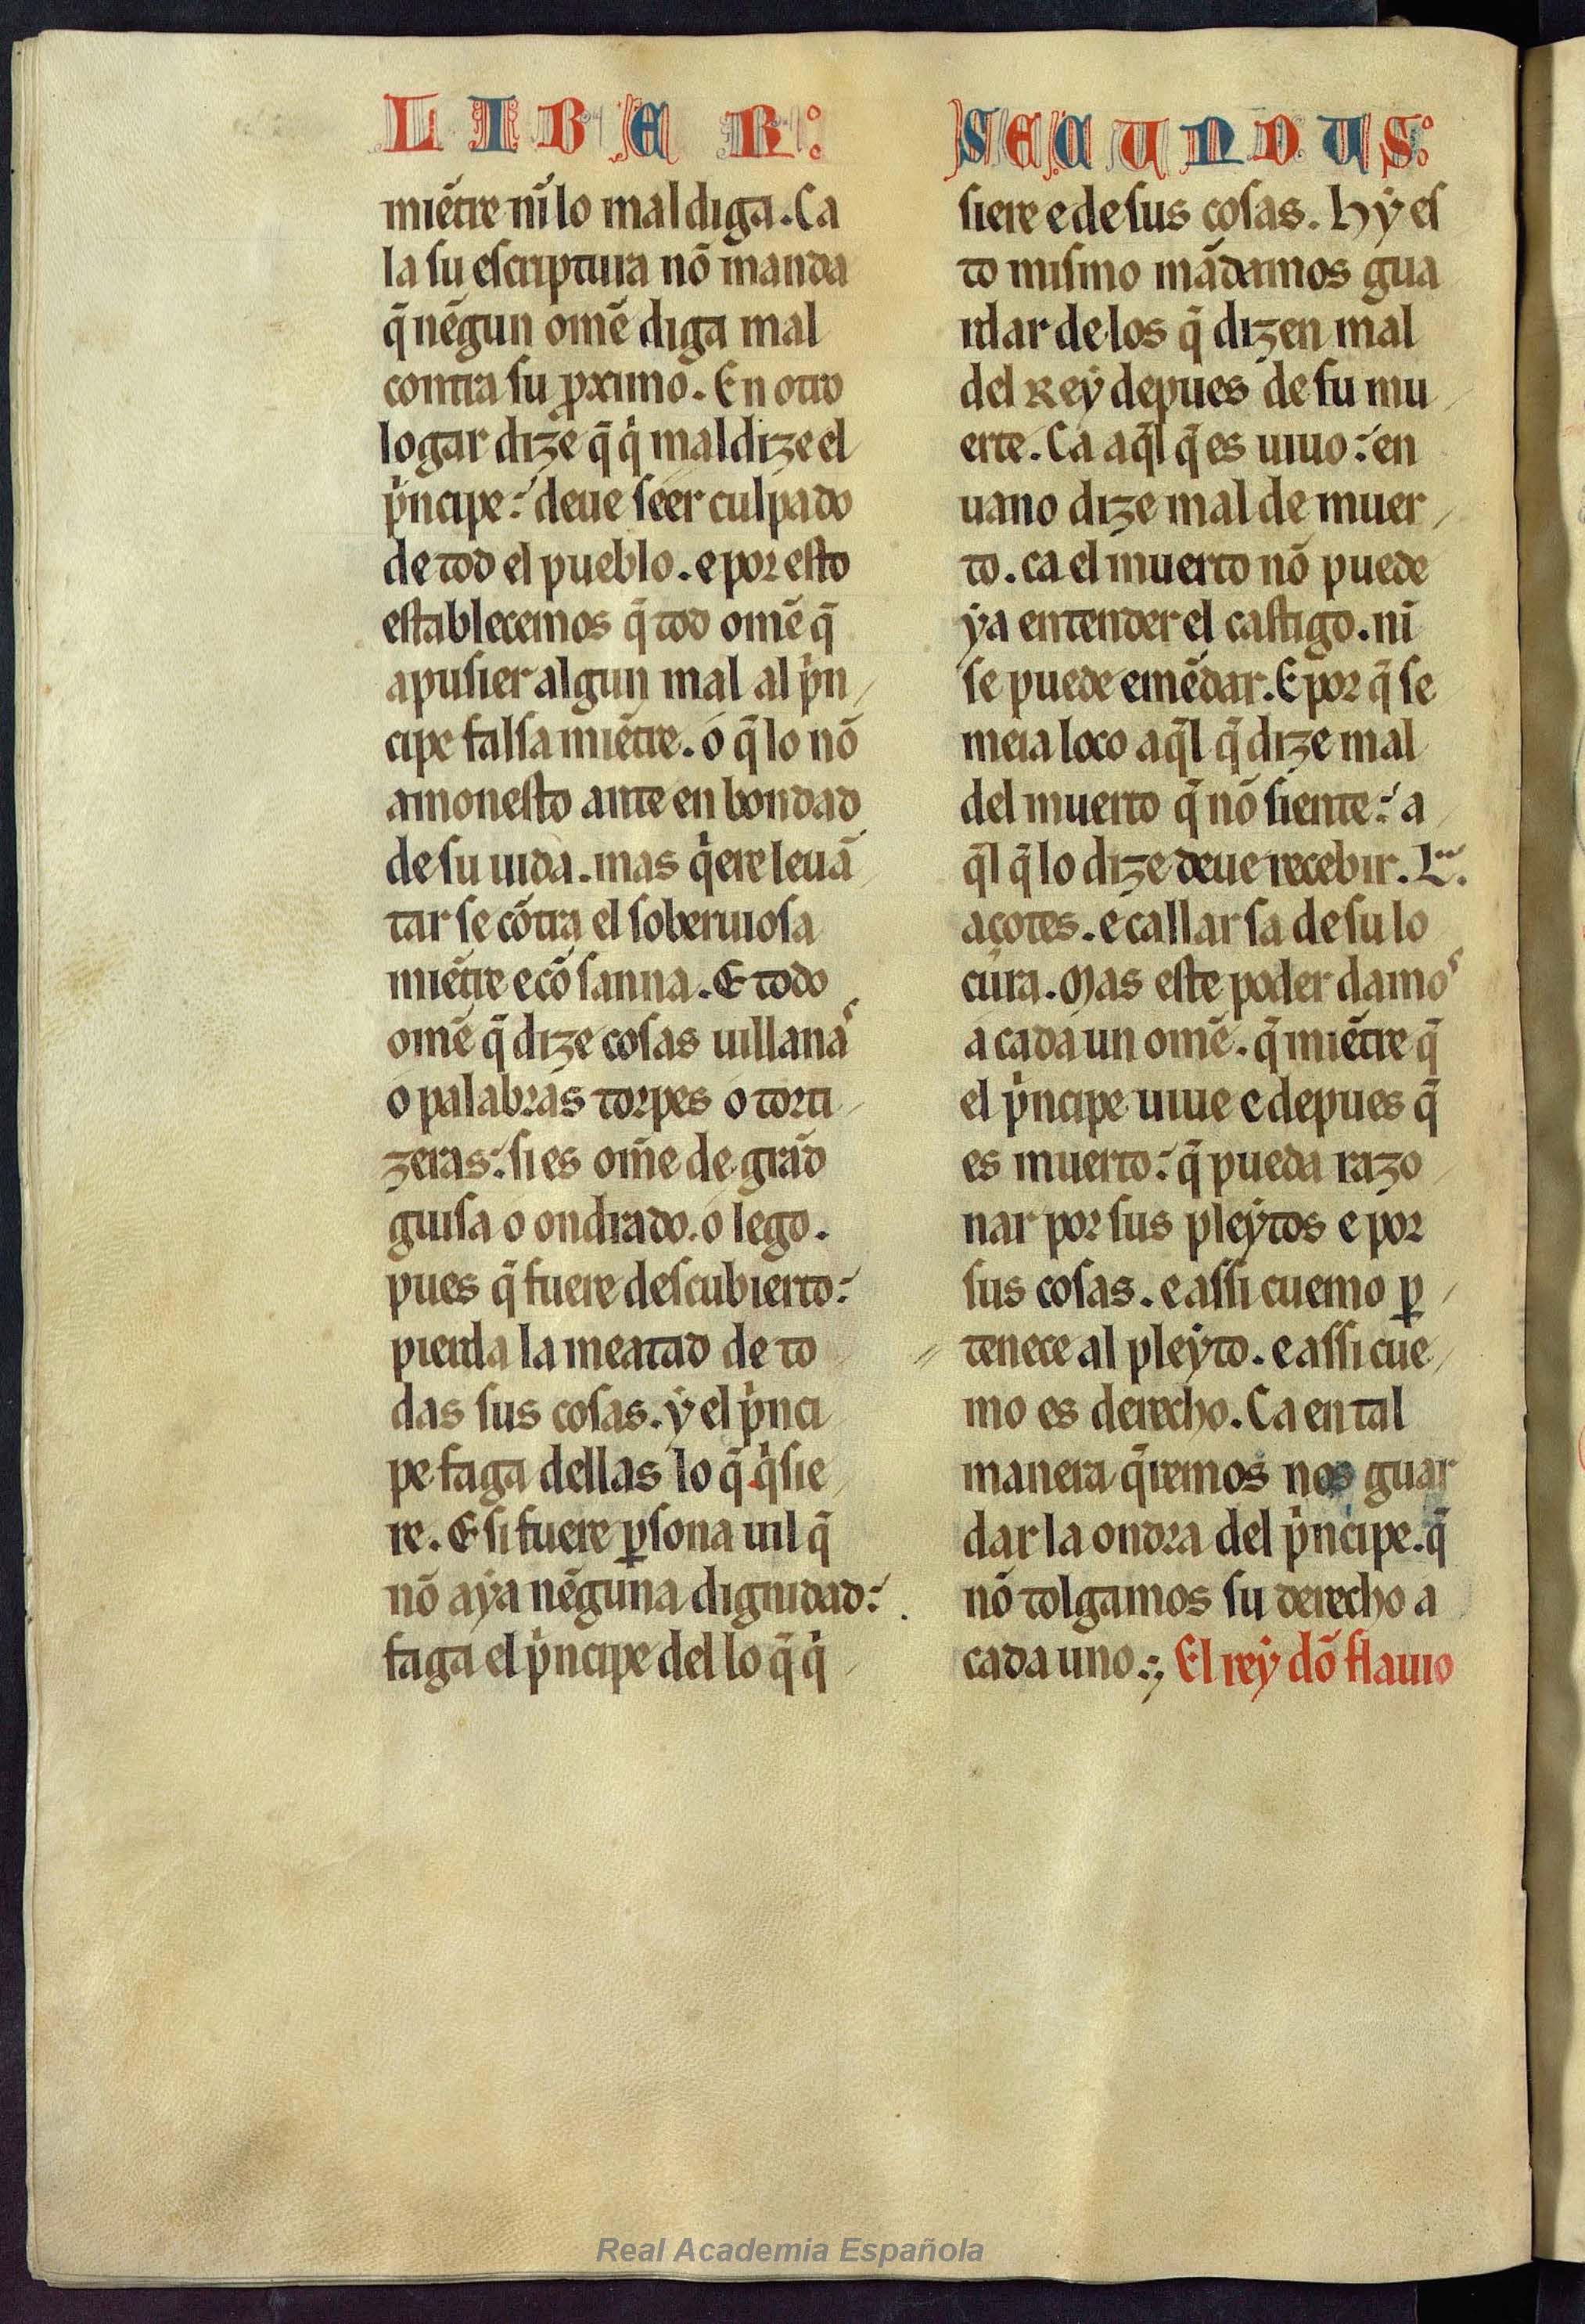 LIBER:
miẽtre nĩ lo mal diga. Ca
la su escriptura nõ manda
q̃ nẽgun omẽ diga mal
contra su ꝓximo. En otro
logar dize q̃ qͥ mal dize el
pͥncipe: deue seer culpado
de tod el pueblo. e por esto
establecemos q̃ tod omẽ q̃
apusier algun mal al pͥn
cipe falsa miẽtre. o q̃ lo nõ
amonesto ante en bondad
de su uida. mas qͥere leuã
tar se cõtra el soberuiosa
miẽtre e cõ sanna. E todo
omẽ q̃ dize cosas uillanas
o palabras torpes o torti
zeras: si es om̃e de grãd
guisa o ondrado. o lego.
pues q̃ fuere descubierto:
pierda la meatad de to
das sus cosas. ẏ el pͥnci
pe faga dellas lo q̃ qͥsie
re. E si fuere ꝑsona uil q̃
nõ aẏa nẽguna dignidad:
faga el pͥncipe del lo q̃ qͥ
SECUNDUS:
siere e de sus cosas. Hẏ es
to mismo mãdamos gua
rdar de los q̃ dizen mal
del Reẏ depues de su mu
erte. Ca aq̃l q̃ es uiuo: en
uano dize mal de muer
to. ca el muerto nõ puede
ẏa entender el castigo. nĩ
se puede emẽdar. E por q̃ se
meia loco aq̃l q̃ dize mal
del muerto q̃ nõ siente: a
q̃l q̃ lo dize deue recebir. L.
açotes. e callar sa de su lo
cura. Mas este poder damos
a cada un omẽ. q̃ miẽtre q̃
el pͥncipe uiue e depues q̃
es muerto: q̃ pueda razo
nar por sus pleẏtos e por
sus cosas. e assi cuemo ꝑ
tenece al pleẏto. e assi cue
mo es derecho. Ca en tal
manera q̃remos nos guar
dar la ondra del pͥncipe. q̃
nõ tolgamos su derecho a
cada uno.;, El reẏ dõ flauio
Real Academia Española